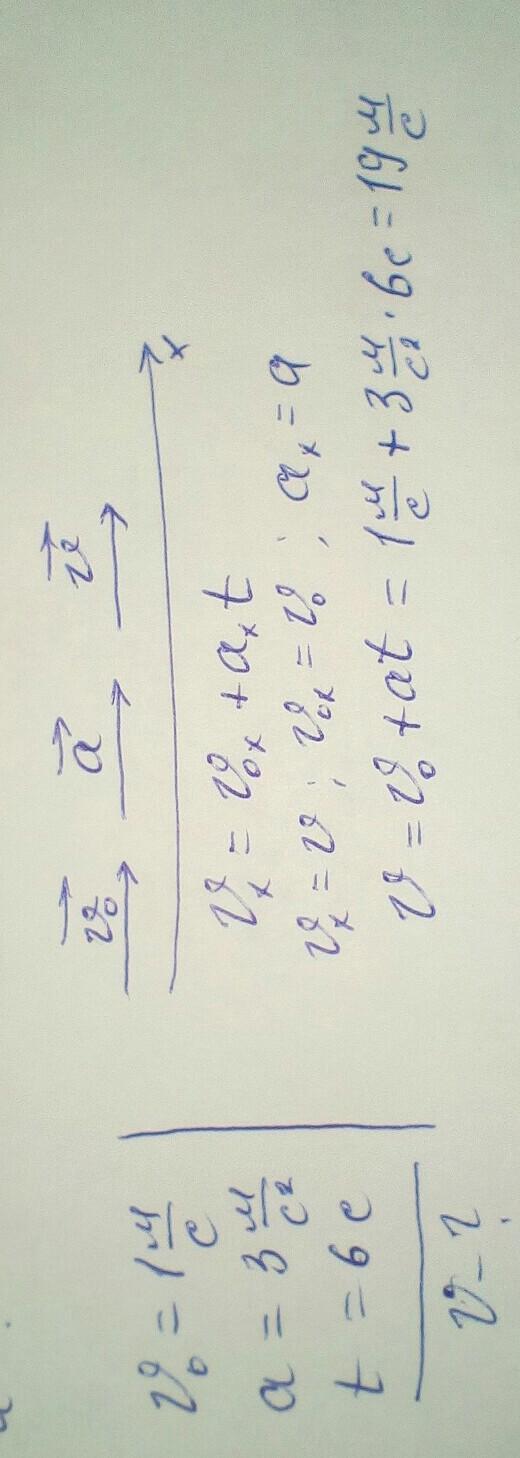 υ₀ = 1 м/с
a = 3 м/с²
t = 6 с
υ - ?
υ₀→ a→ υ→
x
υₓ = υ₀ₓ + aₓt
υₓ = υ ; υ₀ₓ = υ₀ ; aₓ = a
υ = υ₀ + at = 1 м/с + 3 м/с² · 6с = 19 м/с